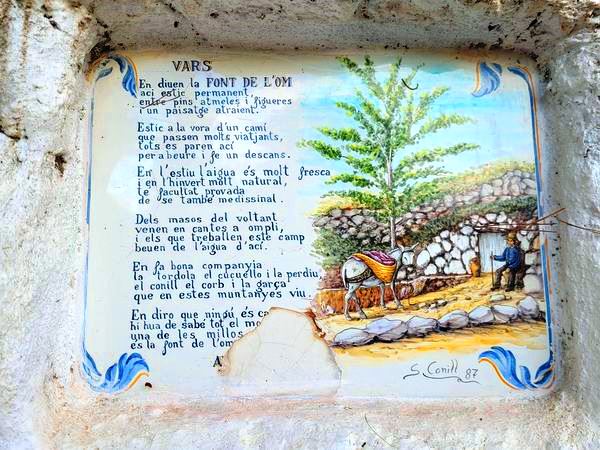 VARS
En diuen la FONT DE L'OM
aci estic permanent,
entre pins atmeles i figueres
i un paisatge atraient.
Estic a la vora d'un camí
que passen molts viatjants,
tots es paren ací
per a beure i fe un descans.
En l'estiu l'aigua és molt fresca
i en l'hinvert molt natural,
te facultat provada
de se també medissinal.
Dels masos del voltant
venen en cantos a ompli,
i els que treballen este camp
beuen de l'aigua d'ací.
En fa bona companyia
la tordola el cucuello i la perdiu,
el conill el corb i la garça
que en estes muntanyes viu.
En diro que ningú, és ca
hi hua de sabé tot el mo
una de les millos
és la font de l'om
A
S. Conill 87